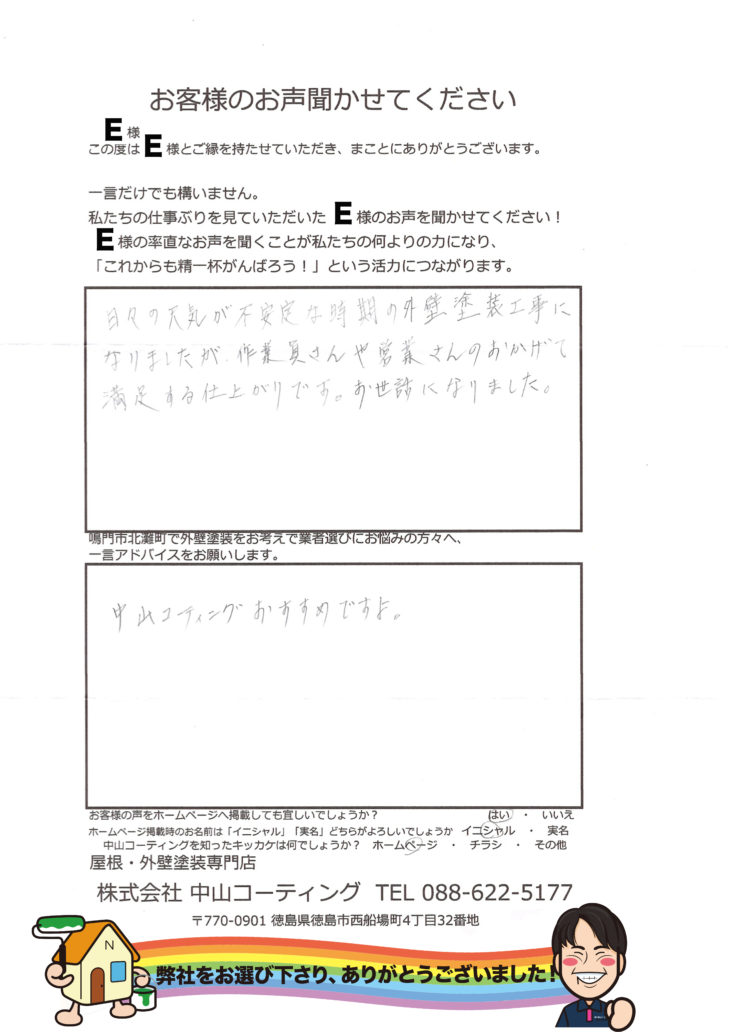 お客様のお声聞かせてください
E 様
この度は E 様とご縁を持たせていただき、まことにありがとうございます。
一言だけでも構いません。
私たちの仕事ぶりを見ていただいた E 様のお声を聞かせてください！
E 様の率直なお声を聞くことが私たちの何よりの力になり、
「これからも精一杯がんばろう！」という活力につながります。
日々の天気が不安定な時期の外壁塗装工事に
なりましたが、作業員さんや営業さんのおかげで
満足する仕上がりです。お世話になりました。
鳴門市北灘町で外壁塗装をお考えで業者選びにお悩みの方々へ、
一言アドバイスをお願いします。
中山コーティングおすすめですよ。
お客様の声をホームページへ掲載しても宜しいでしょうか？ はい ・ いいえ
ホームページ掲載時のお名前は「イニシャル」「実名」どちらがよろしいでしょうか イニシャル ・ 実名
中山コーティングを知ったキッカケは何でしょうか？ ホームページ ・ チラシ ・ その他
屋根・外壁塗装専門店
株式会社 中山コーティング TEL 088-622-5177
〒770-0901 徳島県徳島市西船場町4丁目32番地
N
弊社をお選び下さり、ありがとうございました！